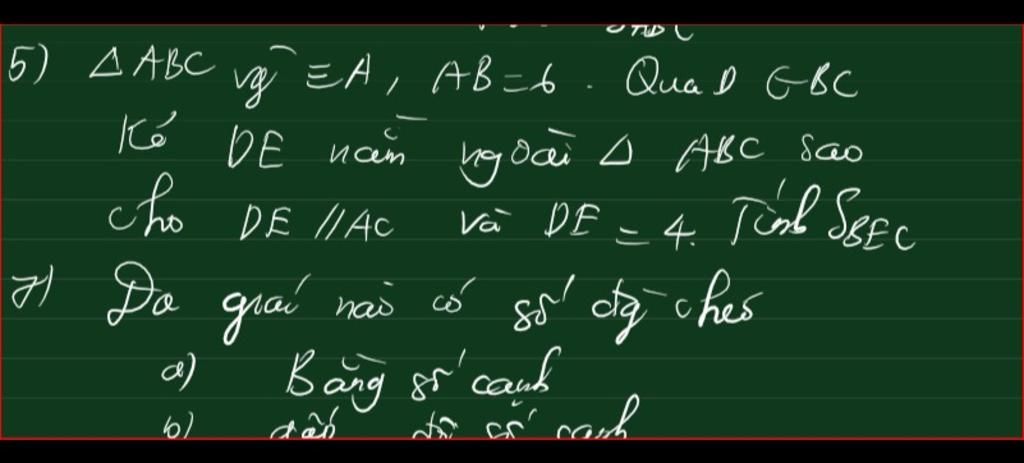 5) △ ABC vg ≡ A, AB = 6. Qua D ∈ BC
Kẻ DE nằm ngoài △ ABC sao
cho DE // AC và DE = 4. Tính S_BEC
7) Đa giác nào có số đg chéo
a) Bằng số cạnh
b) gấp đôi số cạnh